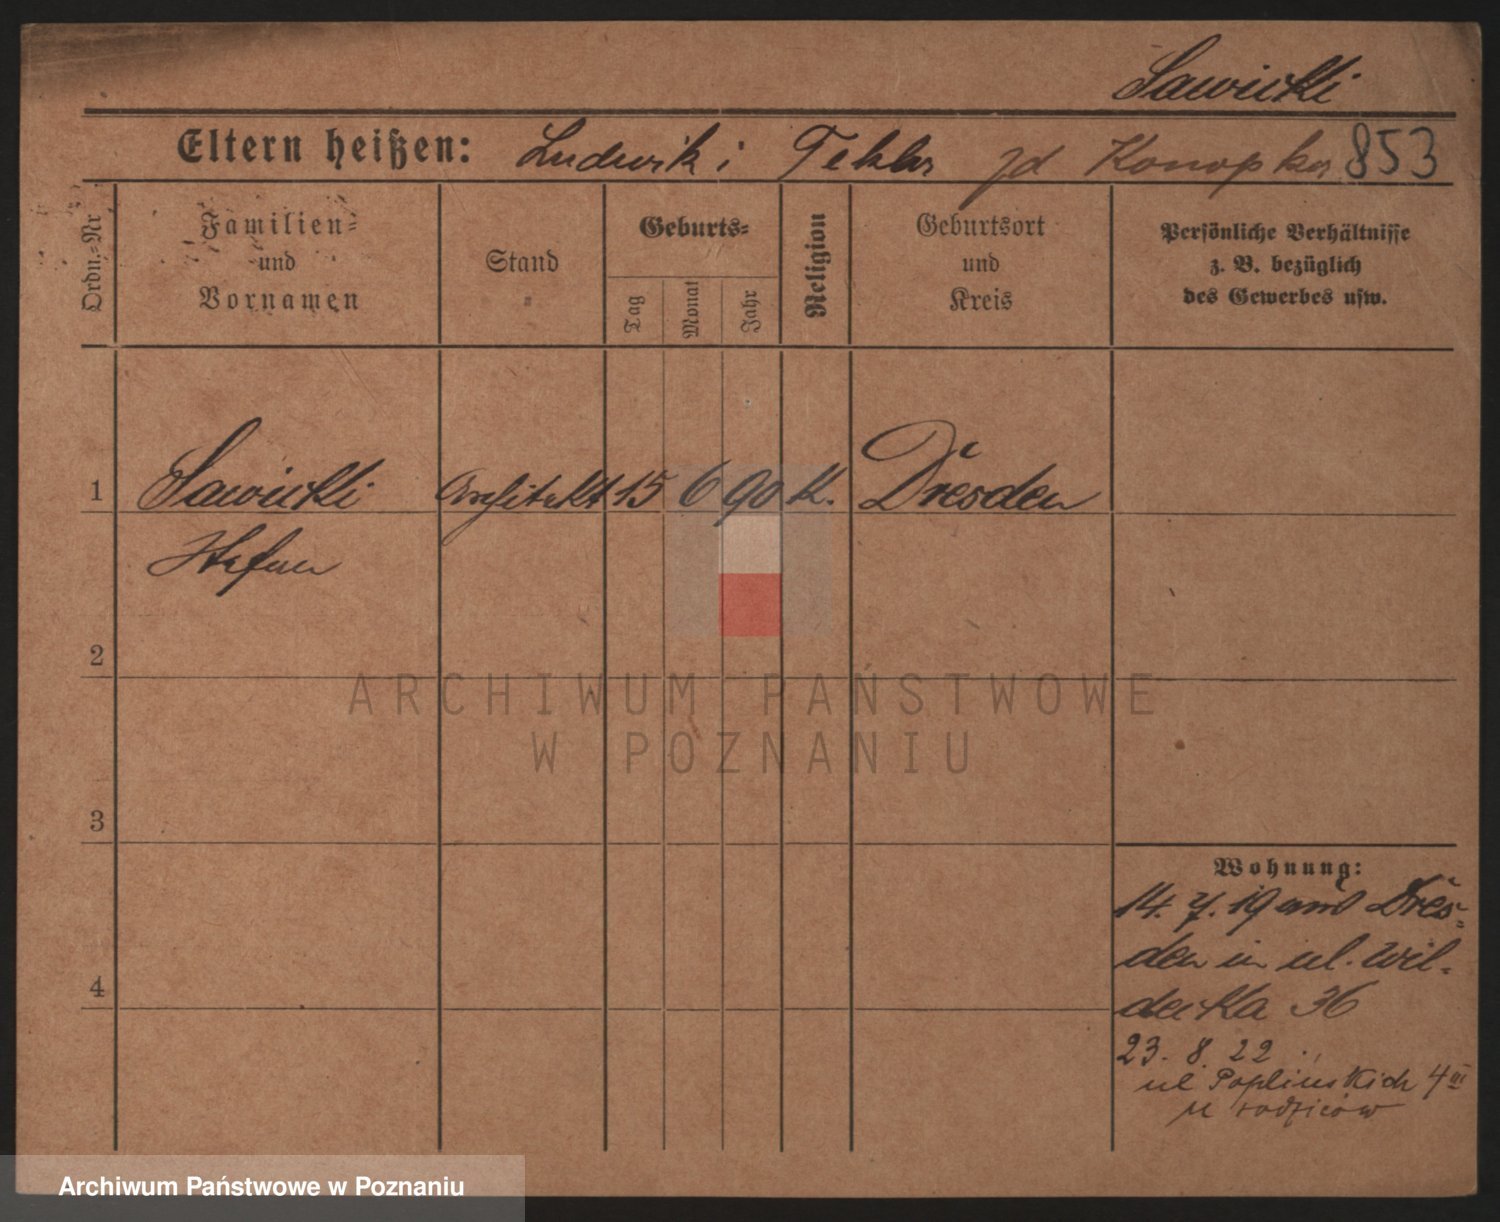 Sawicki
Eltern heißen: Ludwik i Tekla zd Konopka 853
Ordn.=Nr
Familien=
und
Vornamen
Stand
Geburts=
Tag
Monat
Jahr
Religion
Geburtsort
und
Kreis
Persönliche Verhältnisse
z. B. bezüglich
des Gewerbes usw.
1 Sawicki Architekt 15 6 90 K. Dresden
Stefan
2
ARCHIWUM PAŃSTWOWE
W POZNANIU
3
Wohnung:
14. 7. 19 aus Dres-
den in ul. Wil-
decka 36
4
23. 8. 22
ul Poplińskich 4 III
u rodziców
Archiwum Państwowe w Poznaniu